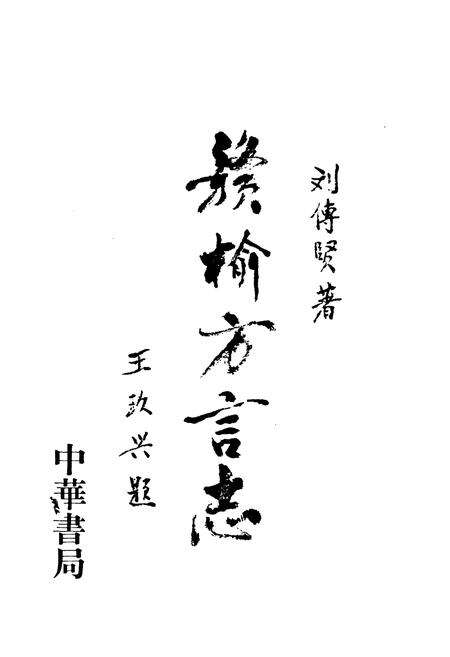 刘傳賢著
赣榆方言志
王玖兴题
中華書局